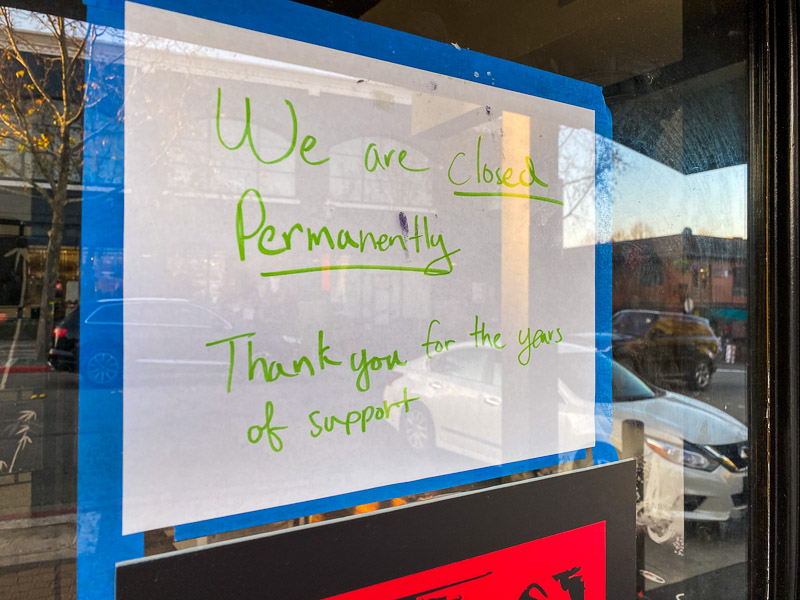 We are closed
Permanently
Thank you for the years
of support